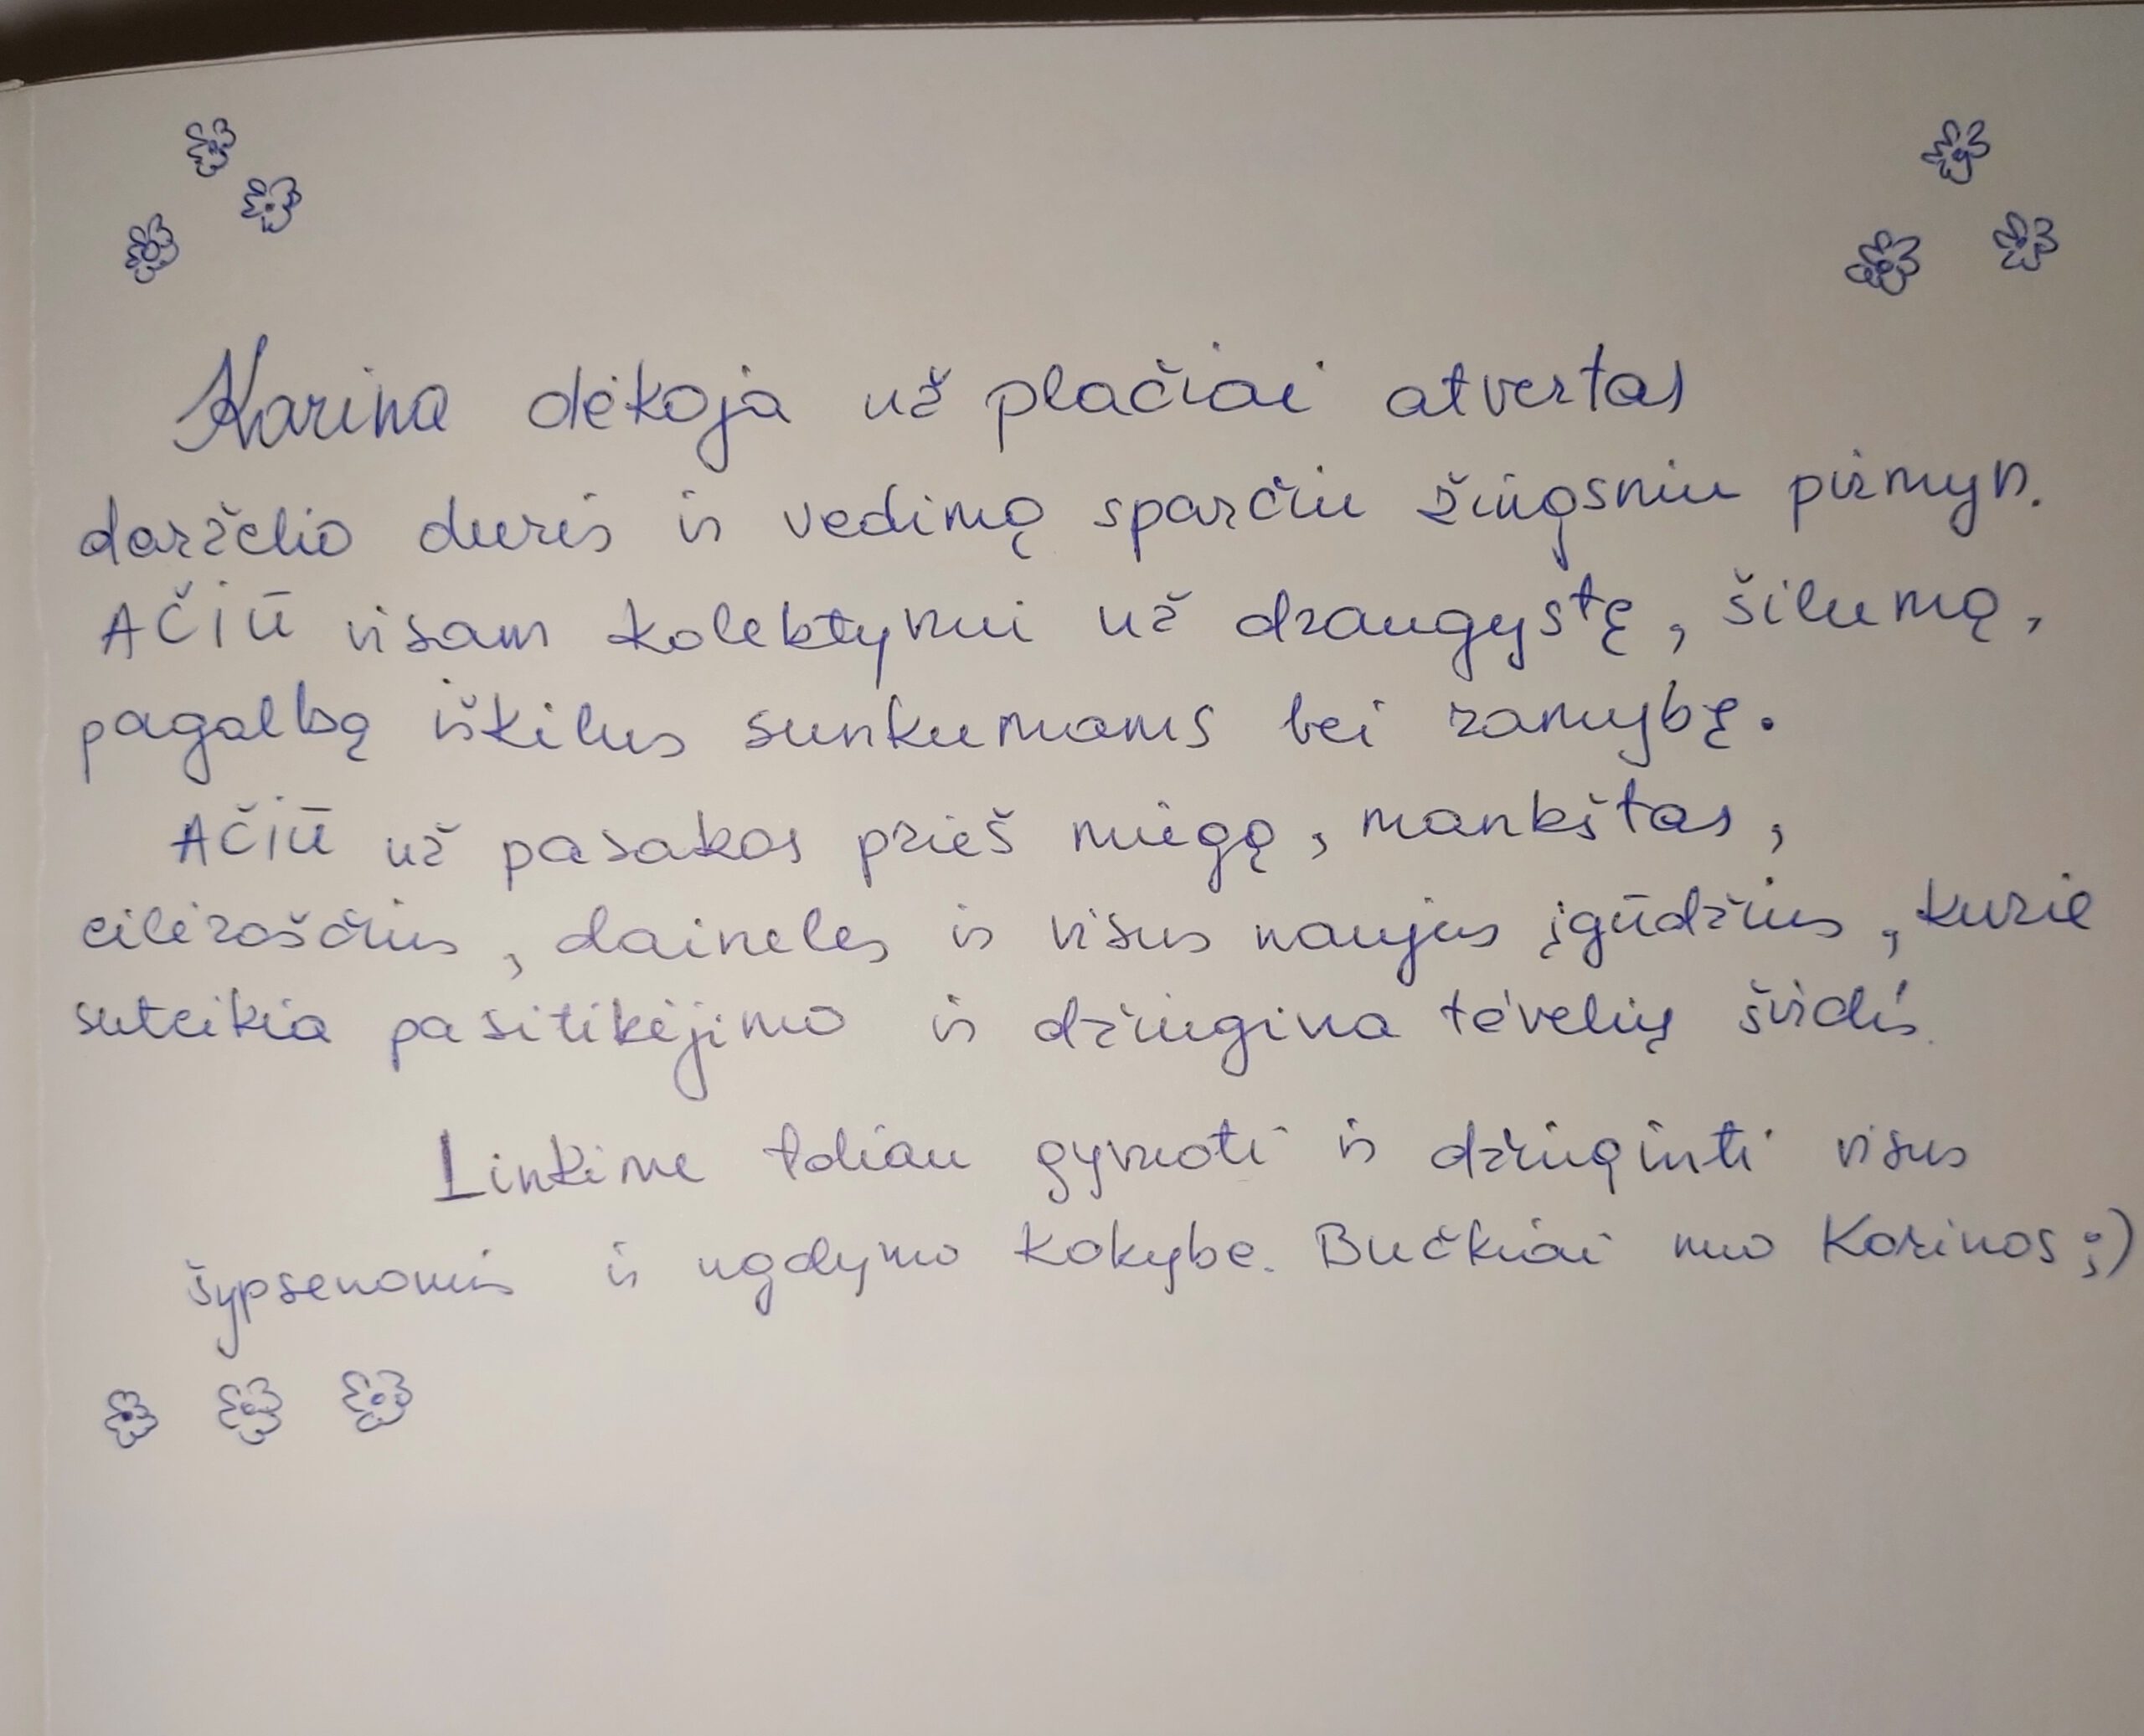 Karina dėkoja už plačiai atvertas
darželio duris ir vedimą sparčiu žingsniu pirmyn.
AČIŪ visam kolektyvui už draugystę, šilumą,
pagalbą iškilus sunkumams bei ramybę.
AČIŪ už pasakas prieš miegą, mankštas,
eilėraščius, daineles ir visus naujus įgūdžius, kurie
suteikia pasitikėjimo ir džiugina tėvelių širdis.
Linkime toliau gyvuoti ir džiuginti visus
šypsenomis ir ugdymo kokybe. Bučkiai nuo Karinos ;)